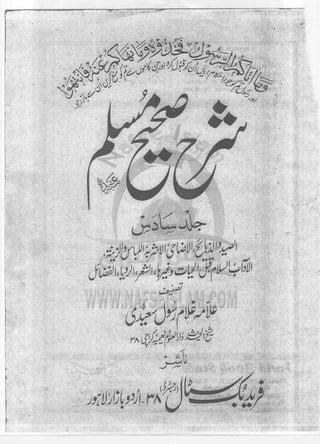 وما آتاكم الرسول فخذوه وما نهاكم عنه فانتهوا
شرح صحیح مسلم
جلد سادس
الصید والذبائح، الاضاحی، الاشربۃ، اللباس والزینۃ،
الآداب، السلام، قتل الحیات وغیرہا، الشعر، الرؤیا، الفضائل
WWW.NAFSEISLAM.COM
تصنیف
علامہ غلام رسول سعیدی
شیخ الحدیث دارالعلوم نعیمیہ کراچی ۳۸
ناشر
فرید بک سٹال (رجسٹرڈ) ۳۸۔اردو بازار لاہور